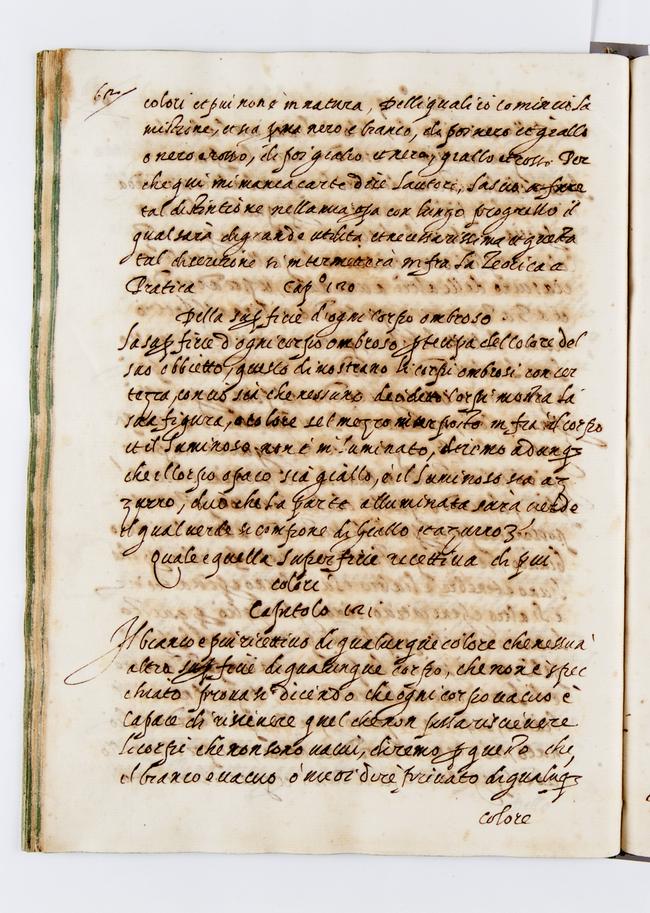 colori et piu non è in natura, Delli quali io comincio la
mistione, et sia pma nero e bianco, di poi nero et giallo
o nero e rosso, di poi giallo et nero, giallo et rosso. Per
che qui mi manca carte dice l'autore, lascio a fare
tal distintione nella mia opa con lungo progresso il
qual sarà di grande utilita et necessarissima et questa
tal discrizione si intermettera in fra la Teorica e
Pratica Capo 120
Della supficie d'ogni corpo ombroso
La supficie d'ogni corpo ombroso ptecipa del colore del
suo obbietto, questo dimostrano li corpi ombrosi con cer
tezza, con cio sia che nessuno de detti corpi mostra la
sua figura, o colore se'l mezzo interposto in fra il corpo
et il luminoso non è inluminato, diremo adunqz
che il corpo opaco sia giallo, e il luminoso sia az
zurro, dicò che la parte alluminata sarà verde
il qual verde si compone di Giallo et azurro
Quale e quella superficie ricettiva di piu
colori
Capitolo 121
Il bianco e piu ricettivo di qualunque colore che nessuna
altra supficie di qualunque corpo, che non e spec
chiato, provasi dicendo che ogni corpo vacuo è
Capace di ricievere quel che non possa ricievere
li corpi che non sono vacui, diremo p questo che
il bianco e vacuo ò vuoi dire privato di qualuqz
colore